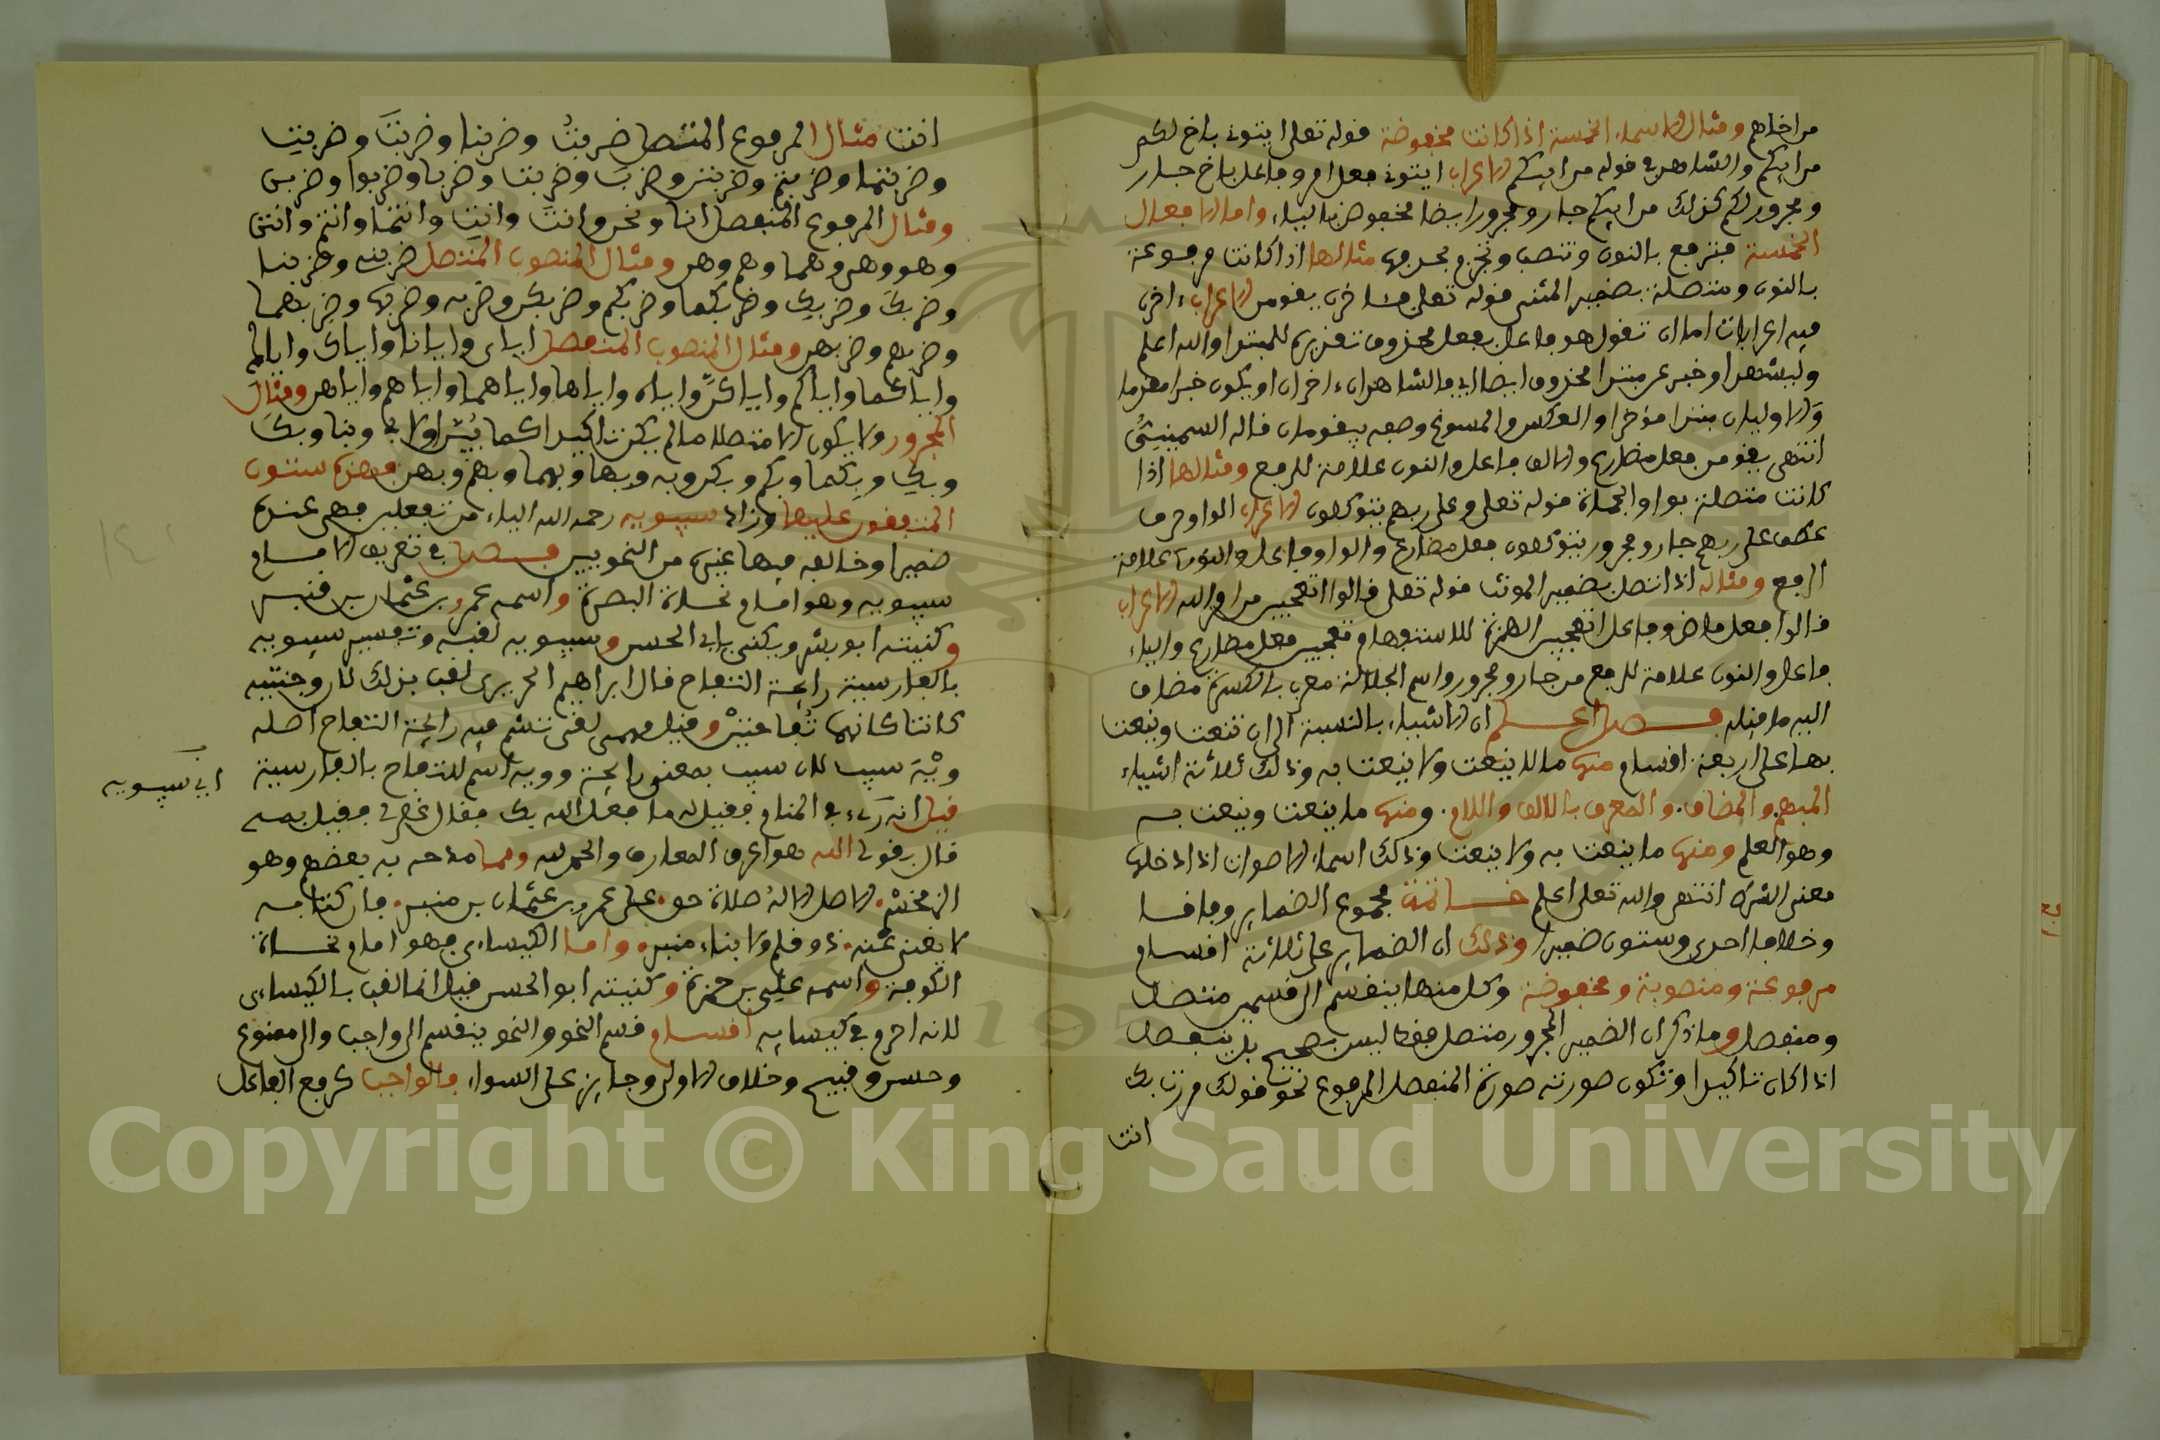 من اخاهم ومثال الاسماء الخمسة اذا كانت مخفوضة قوله تعلى ايتونى باخ لكم
من ابيكم والشاهد فى قوله من ابيكم الاعراب ايتونى فعل امر وفاعل باخ جار
ومجرور لكم كذلك من ابيكم جار ومجرور ايضا مخفوض بالياء واما الافعال
الخمسة فترفع بالنون وتنصب وتجزم بحذفها مثالها اذا كانت مرفوعة
بالنون ومتصلة بضمير المثنى قوله تعلى فئاخران يقومان الاعراب ءاخران
فيه اعرابات اما ان تقول هو فاعل بفعل محذوف تقديره للمبتدا والله اعلم
وليشهدا وخبر عن مبتدا محذوف ايضا اى فالشاهدان ءاخران او يكون خبرا مقدما
والاوليان مبتدا مؤخرا والعكس والمسوغ وصفه بيقومان قاله السمين
انتهى يقومن فعل مضارع والالف فاعل والنون علامة للرفع ومثالها اذا
كانت متصلة بواو الجماعة قوله تعلى وعلى ربهم يتوكلون الاعراب الواو حرف
عطف على ربهم جار ومجرور يتوكلون فعل مضارع والواو فاعل والنون علامة
الرفع ومثاله اذا اتصل بضمير المونث قوله تعلى قالوا اتعجبين من امر الله الاعراب
قالوا فعل ماض وفاعل اتعجبين الهمزة للاستفهام وتعجبين فعل مضارع والياء
فاعل والنون علامة للرفع من جار ومجرور واسم الجلالة معرب بالكسرة مضاف
اليه ما قبله فصل اعلم ان الاشياء بالنسبة الى ان تنعت وينعت
بها على اربعة اقسام منها ما لا ينعت ولا ينعت به وذلك ثلاثة اشياء
المبهم والمضاف والمعرف بالالف واللام ومنها ما ينعت وينعت به
وهو العلم ومنها ما ينعت به ولا ينعت وذلك اسماء الاصوات اذا دخلها
معنى الشرك انتهى والله تعلى اعلم خاتمة مجموع الضماير وفاقا
وخلافا احدى وستون ضميرا وذلك ان الضماير على ثلاثة اقسام
مرفوعة ومنصوبة ومخفوضة وكل منها ينقسم الى قسمين متصل
ومنفصل وما ذكر ان الضمير المجرور متصل فقط ليس بصحيح بل ينفصل
اذا كان تاكيدا وتكون صورته صورة المنفصل المرفوع نحو قولك مررت بك
انت
انت مثال المرفوع المتصل ضربتُ وضربنا وضربتَ وضربتِ
وضربتما وضربتم وضربتن وضربَ وضربت وضربا وضربوا وضربن
ومثال المرفوع المنفصل انا ونحن وانتَ وانتِ وانتما وانتم وانتن
وهو وهى وهما وهم وهن ومثال المنصوب المتصل ضربنى وضربنا
وضربكَ وضربكِ وضربكما وضربكم وضربكن وضربه وضربها وضربهما
وضربهم وضربهن ومثال المنصوب المنفصل اياى وايانا واياك واياكم
واياكما واياكم واياكنّ واياه واياها واياهما واياهم واياهن ومثال
المجرور ولا يكون الا متصلا ما لم يكن تاكيدا كما بُيّن اولا بى وبنا وبكَ
وبكِ وبكما وبكم وبكن وبه وبها وبهما وبهم وبهن فهذه ستون
المتفق عليها وزاد سيبويه رحمه الله الياء من تفعلين فهى عنده
ضميرا وخالفه فيها غيره من النحويين فصل فى تعريف الامام
سيبويه وهو امام نحاة البصرة واسمه عمرو بن عثمان بن قنبر
وكنيته ابو بشر ويكنى بابى الحسن وسيبويه لقبه وتفسير سيبويه
بالفارسية رايحة التفاح قال ابراهيم الحربى لقب بذلك لان وجنتيه
كانتا كانهما تُفاحتين وقيل فهمى لقى تشم فيه رايحة التفاح اصله
ويْه سيب لان سيب بمعنى رايحة وويه اسم للتفاح بالفارسية
اى سيبويه
قيل انه رءى فى المنام فقيل له ما فعل الله بك فقال غفر لى فقيل بمه
قال بقولى الله هو اعرف المعارف والحمد لله ومما مدحه به بعضهم وهو
الزمخشرى الا صلى الاله صلاة حق على عمرو بن عثمان بن قنبر فان كتابه
لا يغنى عنه ذو قلم ولا ابناء منبر واما الكيساءى فهو امام نحاة
الكوفة واسمه على بن حمزة وكنيته ابو الحسن قيل انما لقب بالكيساءى
لانه احرم فى كيسايه اقسام قسم النحو والنحو ينقسم الى واجب والى ممنوع
وحسن وقبيح وخلاف الاولى وجايز على السواء فالواجب كرفع الفاعل
Copyright © King Saud University
1957